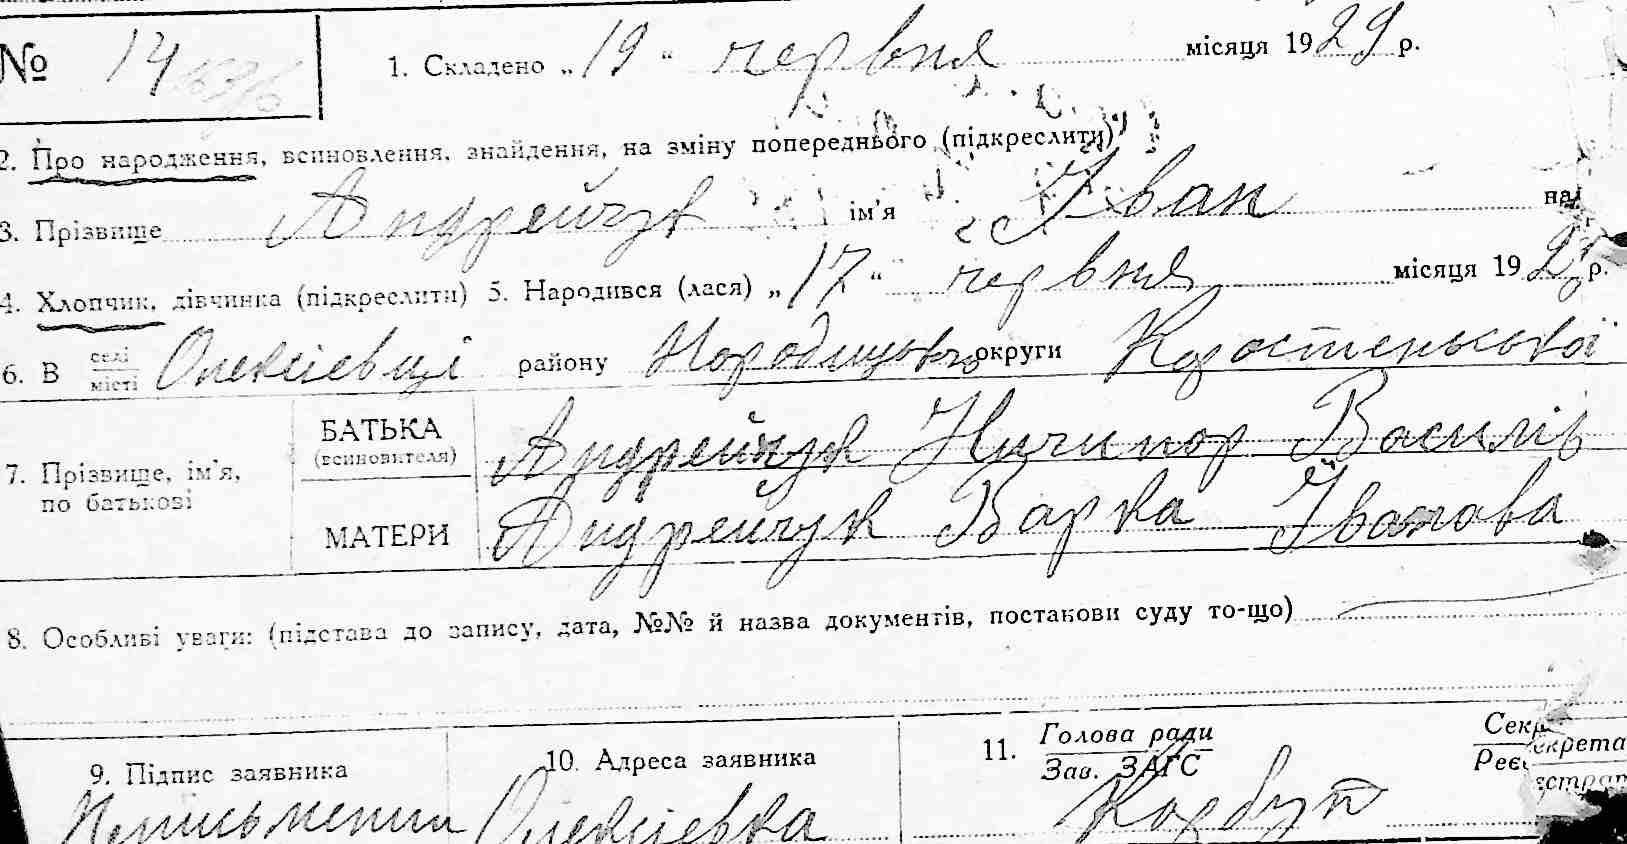 № 14 1. Складено „19“ червня місяця 1929 р.
2. Про народження, всиновлення, знайдення, на зміну попереднього (підкреслити)
3. Прізвище Андрейчук ім’я Іван на
4. Хлопчик, дівчинка (підкреслити) 5. Народився (лася) „17“ червня місяця 192 р.
6. В селі місті Олексієвці району Народицького округи Коростенської
7. Прізвище, ім’я, по батькові
БАТЬКА (всиновителя) Андрейчук Ничипор Василів
МАТЕРИ Андрейчук Варка Іванова
8. Особливі уваги: (підстава до запису, дата, №№ й назва документів, постанови суду то-що)
9. Підпис заявника 10. Адреса заявника 11. Голова ради Зав. ЗАГС
Неписьменний Олексієвка Корбут